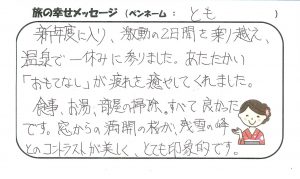 旅の幸せメッセージ （ペンネーム： とも ）
新年度に入り、激動の2日間を乗り越え、
温泉で一休みに参りました。あたたかい
「おもてなし」が疲れを癒やしてくれました。
食事、お湯、部屋の掃除、すべて良かった
です。窓からの満開の桜が、残雪の峰
とのコントラストが美しく、とても印象的です。